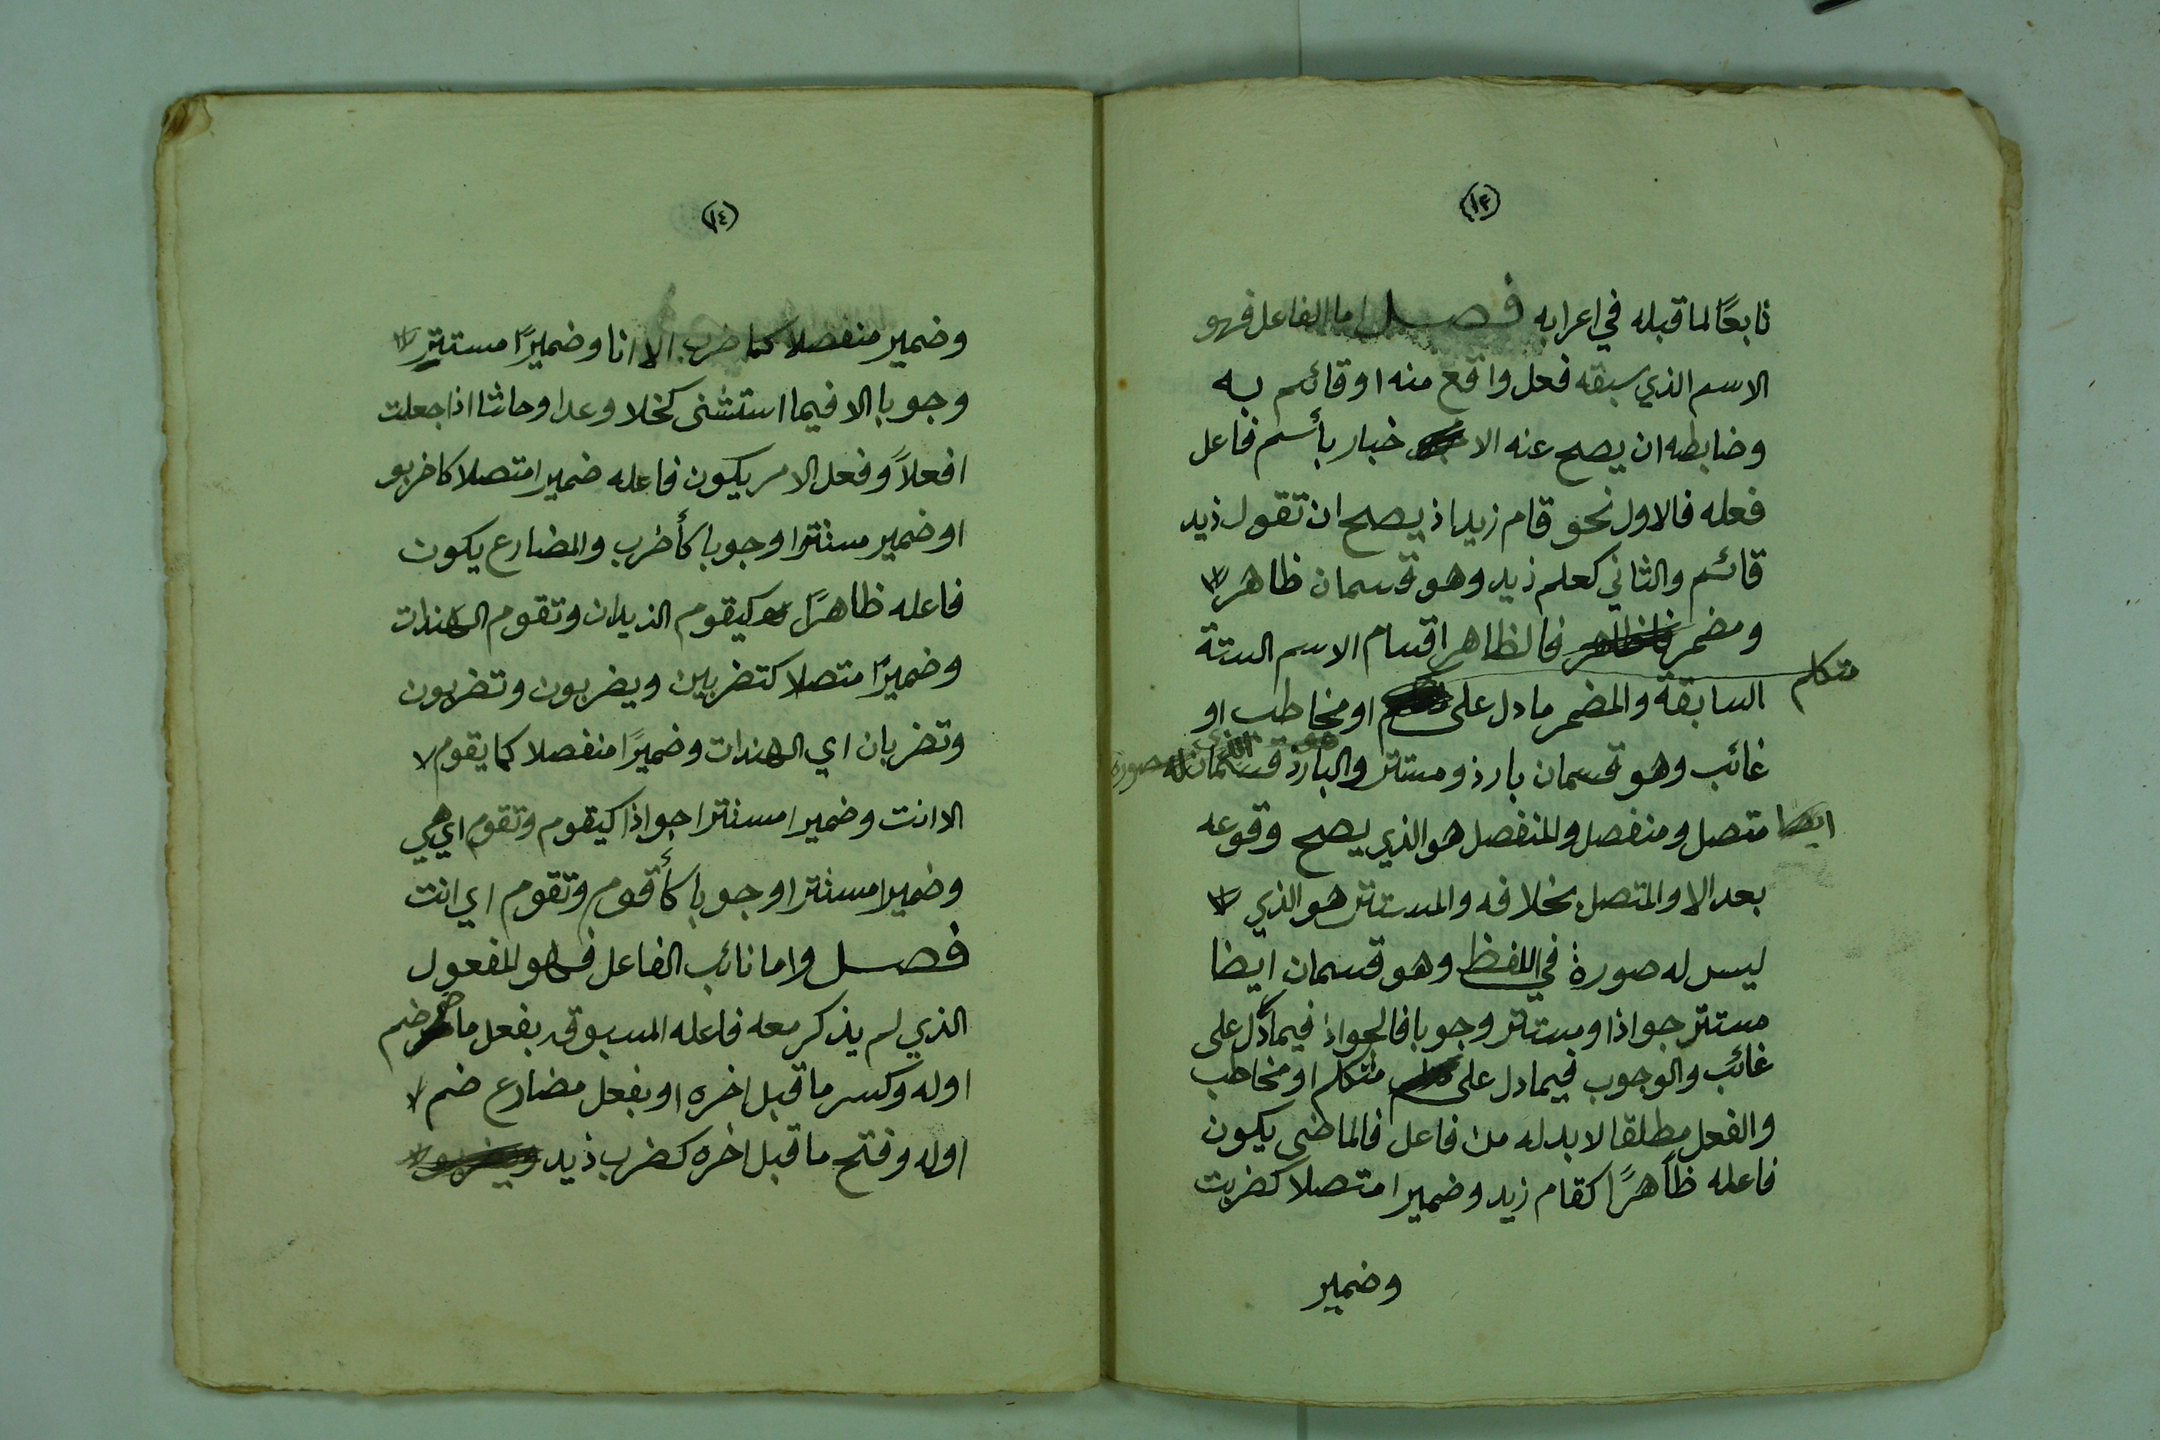 (١٣)
تابعًا لما قبله في اعرابه فصل اما الفاعل فهو
الاسم الذي سبقه فعل واقع منه او قائم به
وضابطه ان يصح عنه الا خبار بأسم فاعل
فعله فالاول نحو قام زيد اذ يصح ان تقول ذيد
قائم والثاني كعلم ذيد وهو قسمان ظاهر
ومضمر فالظاهر اقسام الاسم الستة
متكلم
السابقة والمضمر ما دل على او مخاطب او
غائب وهو قسمان بارذ ومستتر والبارذ الذي له صورة
ايضا متصل ومنفصل والمنفصل هو الذي يصح وقوعه
بعد الا والمتصل بخلافه والمستتر هو الذي
ليس له صورة في اللفظ وهو قسمان ايضا
مستتر جواذا ومستتر وجوبا فالجواذ فيما دل على
غائب والوجوب فيما دل على متكلم او مخاطب
والفعل مطلقا لا بد له من فاعل فالماضي يكون
فاعله ظاهرًا كقام زيد وضميرا متصلا كضربت
وضمير
(١٤)
وضمير منفصلا كما ضرب الا انا وضميرًا مستتر
وجوبا الا فيما استثنى كخلا وعدا وحاشا اذا جعلت
افعلاً وفعل الامر يكون فاعله ضميرا متصلا كاضربو
او ضمير مستترا وجوبا كأضرب والمضارع يكون
فاعله ظاهرًا كيقوم الذيدان وتقوم الهندات
وضميرًا متصلا كتضربين ويضربون وتضربون
وتضربان اي الهندات وضميرًا منفصلا كما يقوم لا
الا انت وضميرا مستترا جواذا كيقوم وتقوم اي هي
وضميرا مستترا وجوبا كأقوم وتقوم اي انت
فصل واما نائب الفاعل فهو المفعول
الذي لم يذكر معه فاعله المسبوق بفعل ماض ضم
اوله وكسر ما قبل اخره او بفعل مضارع ضم
اوله وفتح ما قبل اخره كضرب ذيد